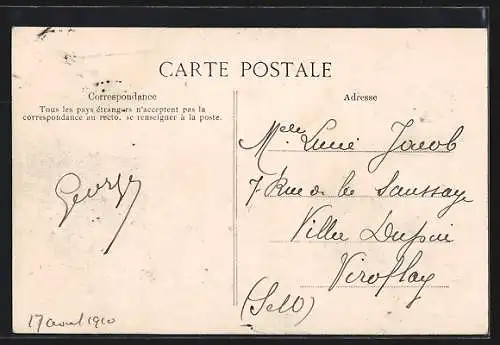 CARTE POSTALE
Correspondance
Tous les pays étrangers n'acceptent pas la
correspondance au recto. se renseigner à la poste.
Adresse
Melle Lucie Jacob
7 Rue de la Saussaye
Villa Dupuis
Viroflay
(S et O)
Georges
17 aout 1910